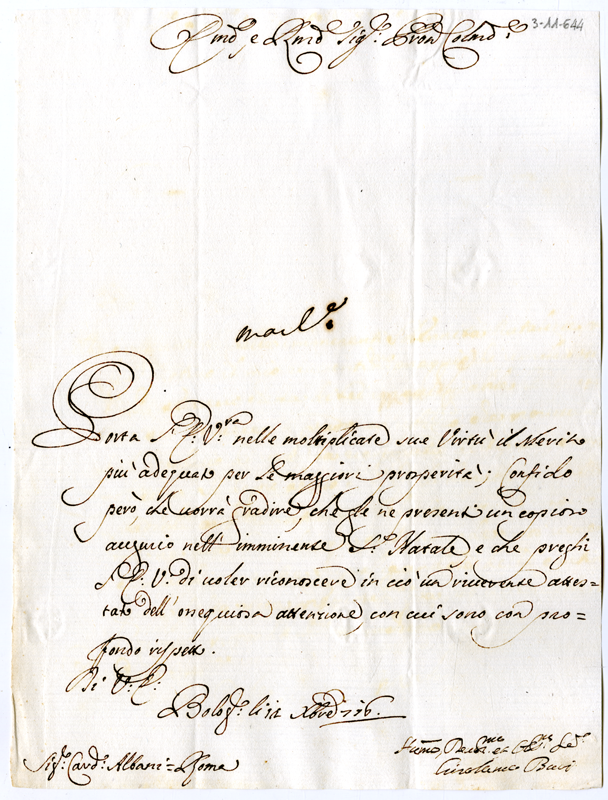 3-11-644
Em.o e R.mo Sig.r Pron Colmo
Porta l'E. V.ra nelle moltiplicate sue Virtù il Merito
più adeguato per le maggiori prosperità; Confido
però, che vorrà gradire, che le ne presenti un copioso
augurio nell'imminente S.o Natale, e che preghi
l'E. V. di voler riconoscere in ciò un riverente attes=
tato dell'ossequiosa attenzione, con cui sono con pro=
fondo rispetto.
Di V. E.
Bolog.a li 12 Xbre 1716.
Sig.r Card.l Albani = Roma
Humo Devmo et Se.r
Girolamo